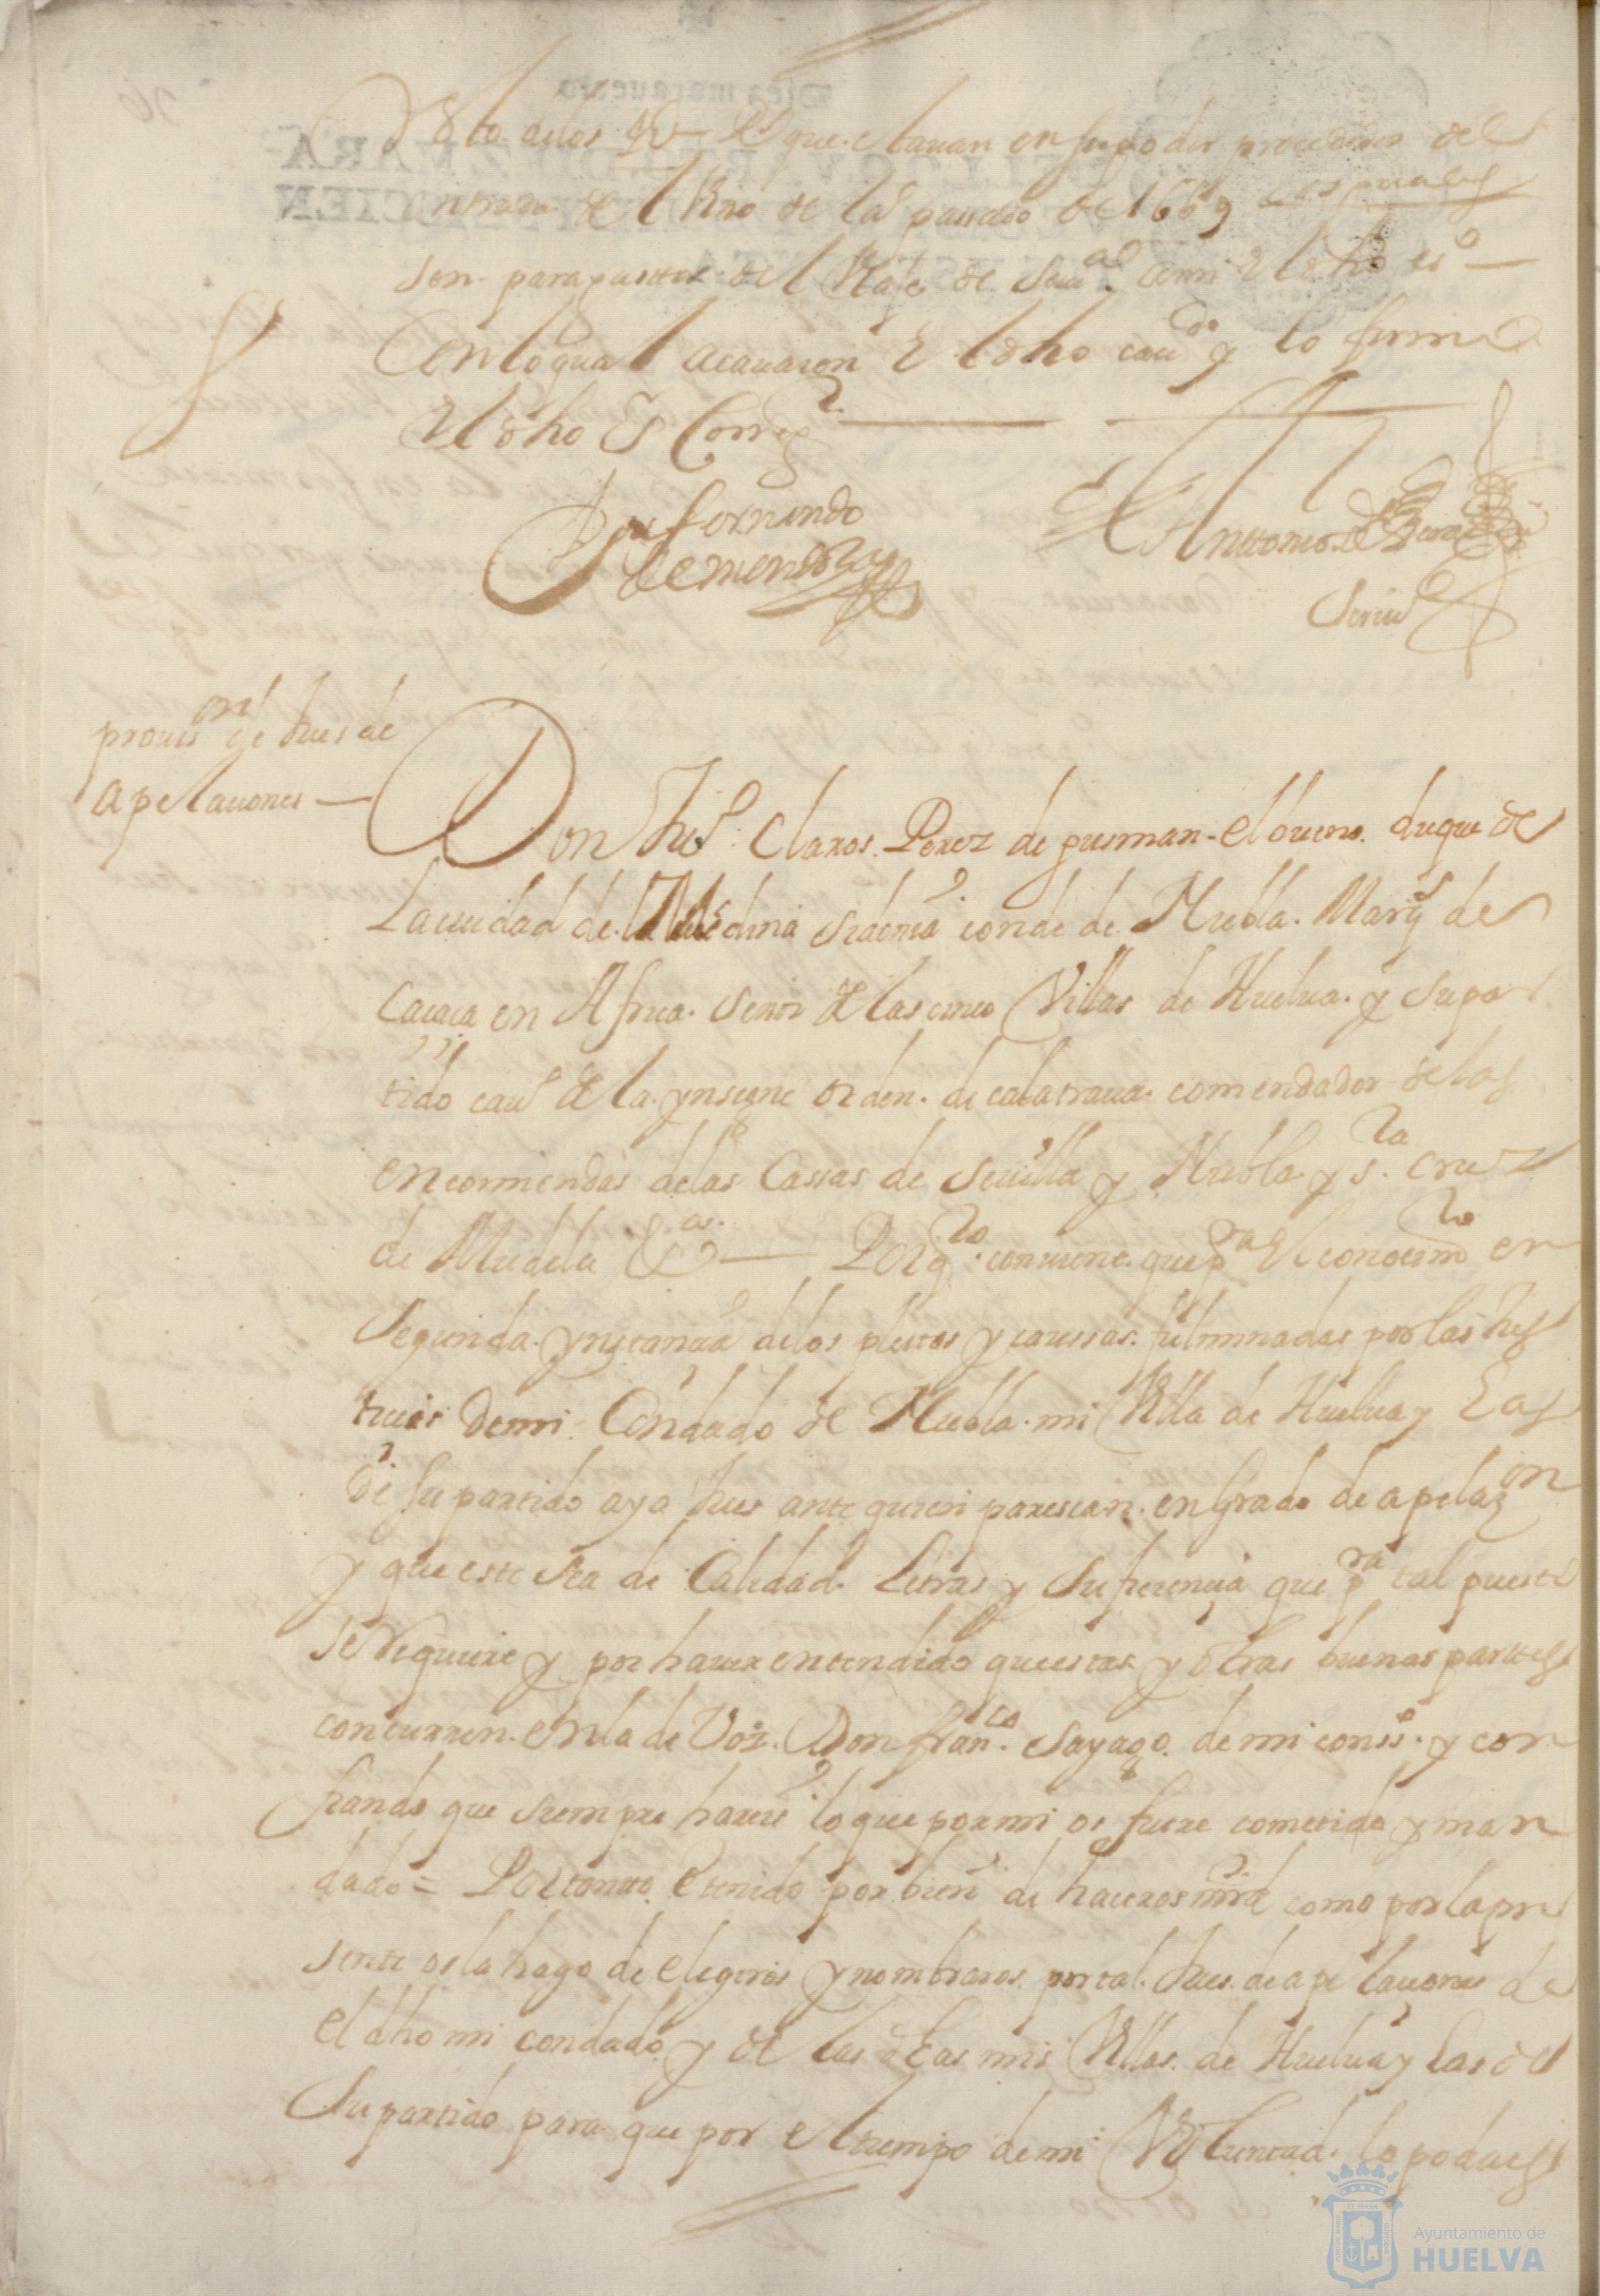 delos que estauan en su poder procedidos del
de l Vino de la de 1669 los quales
son para del Viaje de Seuª a mi el dho esº
Con lo qual acauaron el dho cauᵈᵒ y lo firmo
el dho Sʳ Corregʳ
Don fernando
de mendoza
Anttonio de
Scriuº
prouisᵒⁿ de Jues de
apelaciones
Don Juº Claros Perez de gusman el bueno duque de
La ciudad de Medina Sidonia conde de Niebla Marqˢ de
Cacaça en Africa Señor de las cinco Villas de Huelua y su par
tido cauº de la ynsigne orden de calatraua comendador de las
encomiendas de las Cassas de Seuilla y Niebla y sᵗᵃ cruz
de Mudela &ᵃˢ Por qᵗᵒ conuiene que pᵃ el conocimᵗᵒ en
Segunda ynstancia de los pleitos y caussas fulminadas por las Jus
ticias de mi Condado de Niebla mi Villa de Huelua y Las
de su partido aya Jues ante quien parescan en Grado de apelazᵒⁿ
y que este sea de Calidad Letras y Suficiencia que pʳᵃ tal puesto
se Requiere y por hauer entendido que estas y otras buenas parttes
concurren en la de Vos Don franᶜᵒ Sayago de mi consº y con
fiando que siempre hareis lo que por mi os fuere cometido y man
dado = Por tantto e tenido por bien de haceros mrd como por la pre
sente os la hago de elegiros y nombraros por tal Jues de apelaciones de
el dho mi condado y de las dhas mis Villas de Huelua y las de
Su partido para que por el tiempo de mi Voluntad lo podais
Ayuntamiento de
HUELVA